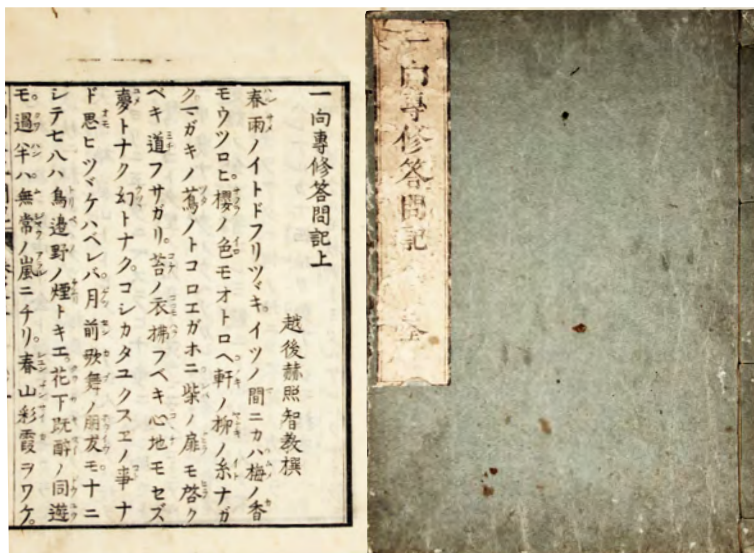 一向專修答問記 全
一向專修答問記上
越後赫照智教撰
春雨ノイトドフリツヾキ。イツノ間ニカハ梅ノ香
モウツロヒ。櫻ノ色モオトロヘ軒ノ柳ノ糸ナガ
ク。マガキノ蔦ノトコロエガホニ柴ノ扉モ啓ク
ベキ道フサガリ。苔ノ衣拂フベキ心地モセズ
夢トナク幻トナク。コシカタユクスエノ事ナ
ド思ヒツヾケハベレバ。月前歌舞ノ朋友モ。十ニ
シテ七八ハ鳥邊野ノ煙トキエ。花下既醉ノ同遊
モ。過半ハ無常ノ嵐ニチリ。春山彩霞ヲワケ。